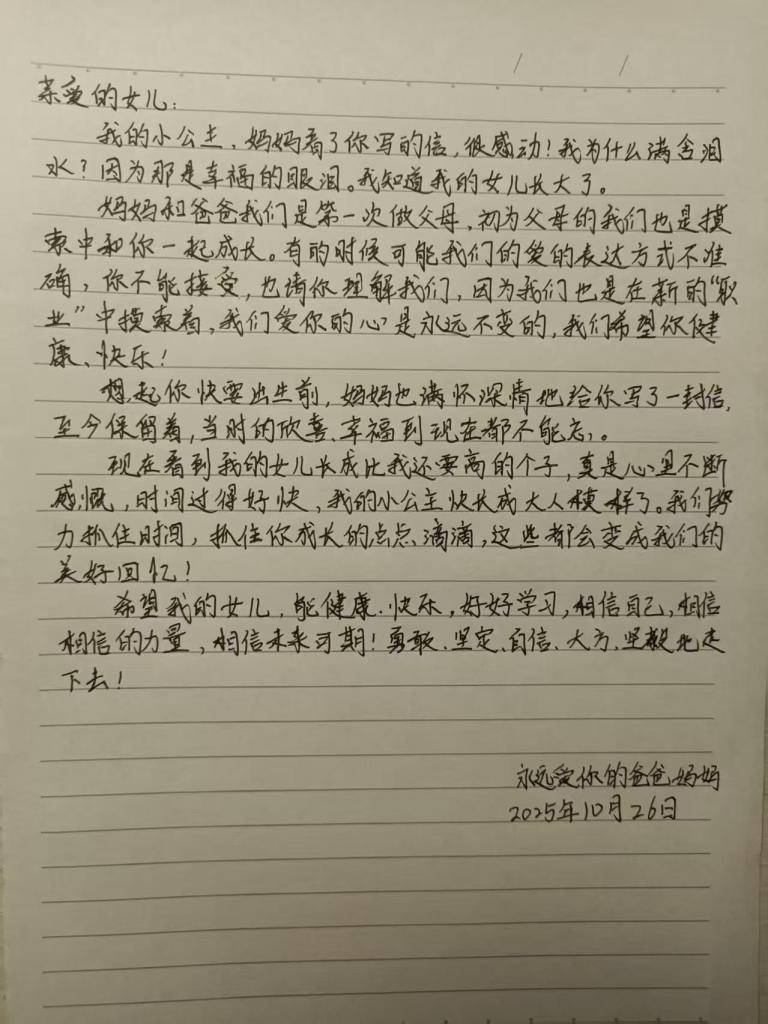 亲爱的女儿:
我的小公主、妈妈看了你写的信,很感动!我为什么满含泪
水?因为那是幸福的眼泪。我知道我的女儿长大了。
妈妈和爸爸我们是第一次做父母,初为父母的我们也是摸
索中和你一起成长。有的时候可能我们的爱的表达方式不准
确,你不能接受,也请你理解我们,因为我们也是在新的“职
业”中摸索着,我们爱你的心是永远不变的,我们希望你健
康、快乐!
想起你快要出生前,妈妈也满怀深情地给你写了一封信,
至今保留着,当时的欣喜、幸福到现在都不能忘。
现在看到我的女儿长成比我还要高的个子,真是心里不断
感慨,时间过得好快,我的小公主快长成大人模样了。我们努
力抓住时间,抓住你成长的点点滴滴,这些都会变成我们的
美好回忆!
希望我的女儿,能健康、快乐,好好学习,相信自己,相信
相信的力量,相信未来可期!勇敢、坚定、自信、大方、坚毅地走
下去!
永远爱你的爸爸妈妈
2025年10月26日